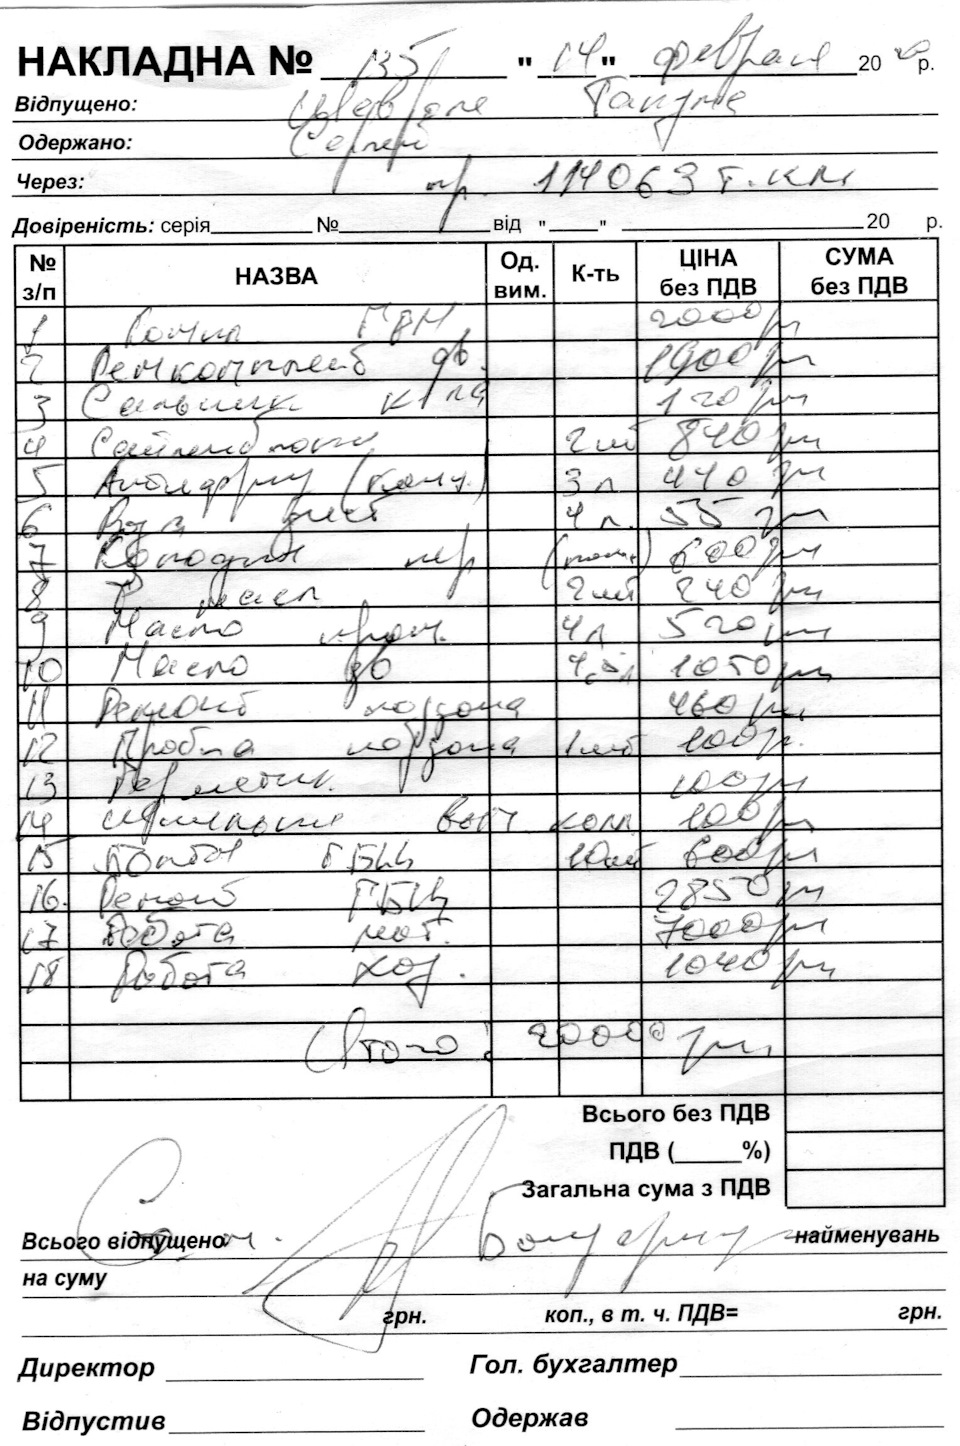 НАКЛАДНА № 135 "14" февраля 20 р.
Відпущено: Шевроле Такума
Одержано: Сергей
Через: пр. 114063 т.км
Довіреність: серія №  від " " 20 р.
№ з/п НАЗВА Од. вим. К-ть ЦІНА без ПДВ СУМА без ПДВ
1 ГРМ 2000 грн
2 Ремкомплект дв. 1900 грн
3 Сальник к/вала 120 грн
4 Сайлентблоки 2 шт 840 грн
5 Антифриз (конц.) 3 л 440 грн
6 Вода дист 4 л. 55 грн
7 Колодки пер 600 грн
8 2 шт 240 грн
9 Масло пром. 4 л 520 грн
10 Масло дв 4,5 л 1050 грн
11 Ремонт поддона 460 грн
12 Пробка поддона 1 шт 100 гр.
13 Герметик 100 грн
14 Шпильки вып комп 100 грн
15 Болты ГБЦ 10 шт 600 грн
16. Ремонт ГБЦ 2850 грн
17 Работа мот. 7000 грн
18 Работа ход. 1040 грн
Итого: 20000 грн
Всього без ПДВ
ПДВ ( %)
Загальна сума з ПДВ
Всього відпущено найменувань
на суму
грн. коп., в т. ч. ПДВ= грн.
Директор Гол. бухгалтер
Відпустив Одержав